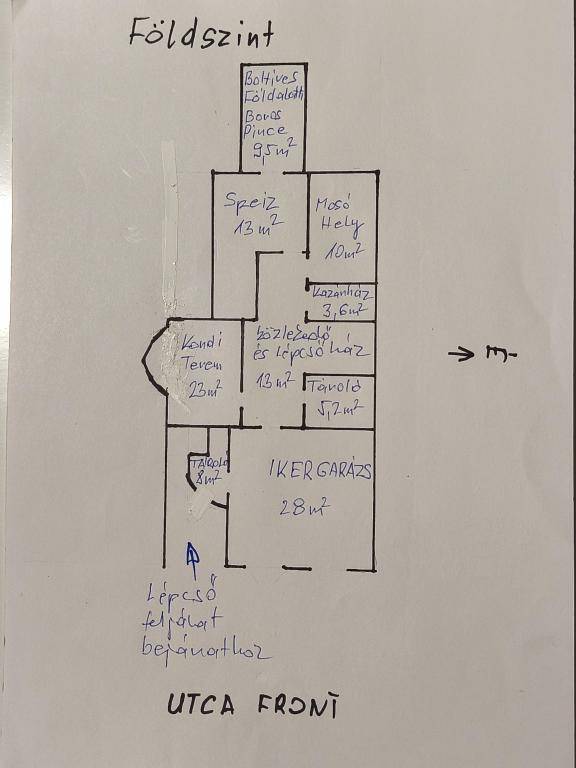 Földszint
Boltíves
Földalatti
Boros
Pince
9,5m²
Speiz
13m²
Mosó
Hely
10m²
Kazánház
3,6m²
Kondi
Terem
23m²
közlekedő
és Lépcső ház
13m²
Tároló
5,2m²
É
TÁROLÓ
8m²
IKERGARÁZS
28m²
Lépcső
feljárat
bejárathoz
UTCA FRONT